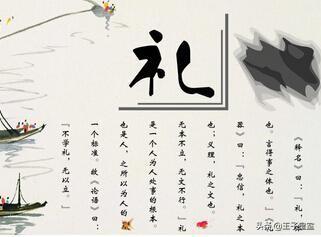 礼
《释名》曰:『礼,体
也。言得事之体也。』《礼
器》曰:『忠信,礼之本
也;义理,礼之文也。
无本不立,无文不行。』礼
是一个人为人处事的根本。
也是人,之所以为人的
一个标准。故《论语》曰:
『不学礼,无以立。』
头条@王子虚虚